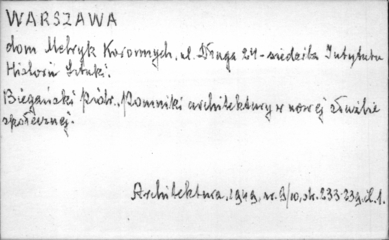 WARSZAWA
dom Metryk Koronnych, ul. Długa 24 - siedziba Instytutu
Historii Sztuki.
Biegański Piotr, Pomniki architektury w nowej służbie
społecznej.
Architektura, 1949, nr. 9/10, str. 233-239, il. 1.